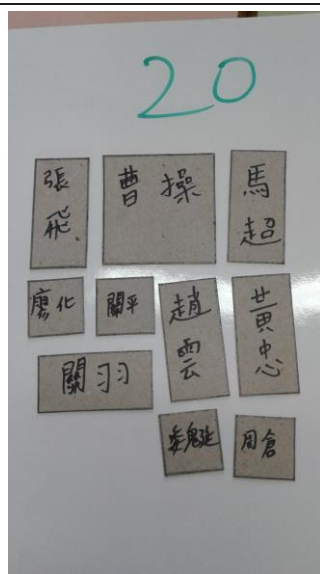 20
張飛
曹操
馬超
廖化
關平
趙雲
黃忠
關羽
魏延
周倉